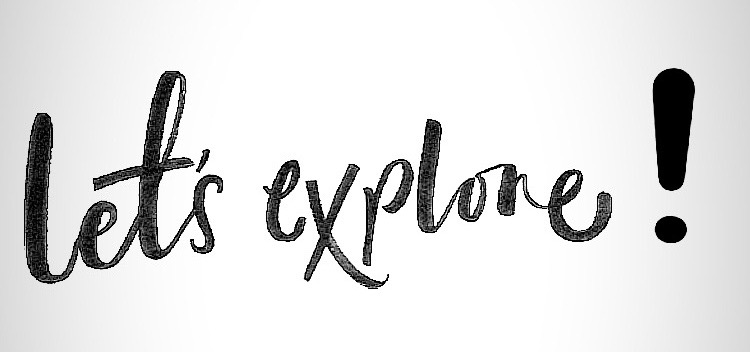 let's explore!